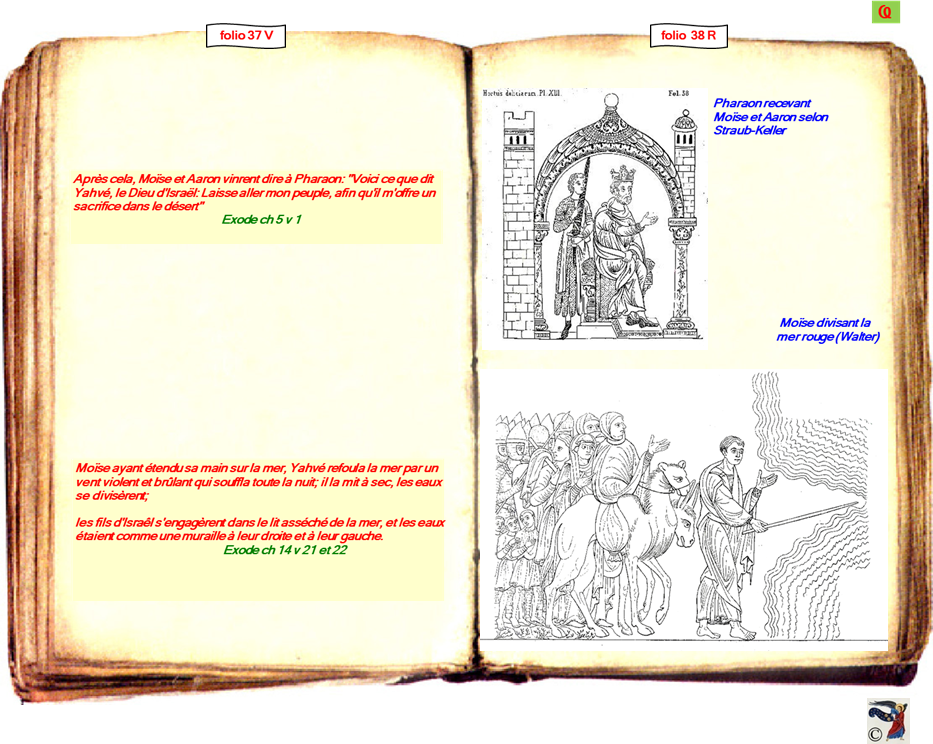 folio 37 V
Après cela, Moïse et Aaron vinrent dire à Pharaon: "Voici ce que dit
Yahvé, le Dieu d'Israël: Laisse aller mon peuple, afin qu'il m'offre un
sacrifice dans le désert"
Exode ch 5 v 1
Moïse ayant étendu sa main sur la mer, Yahvé refoula la mer par un
vent violent et brûlant qui souffla toute la nuit; il la mit à sec, les eaux
se divisèrent;
les fils d'Israêl s'engagèrent dans le lit asséché de la mer, et les eaux
étaient comme une muraille à leur droite et à leur gauche.
Exode ch 14 v 21 et 22
folio 38 R
Hortus deliciarum. Pl. XIII.
Fol. 38
Pharaon recevant
Moïse et Aaron selon
Straub-Keller
Moïse divisant la
mer rouge (Walter)
©